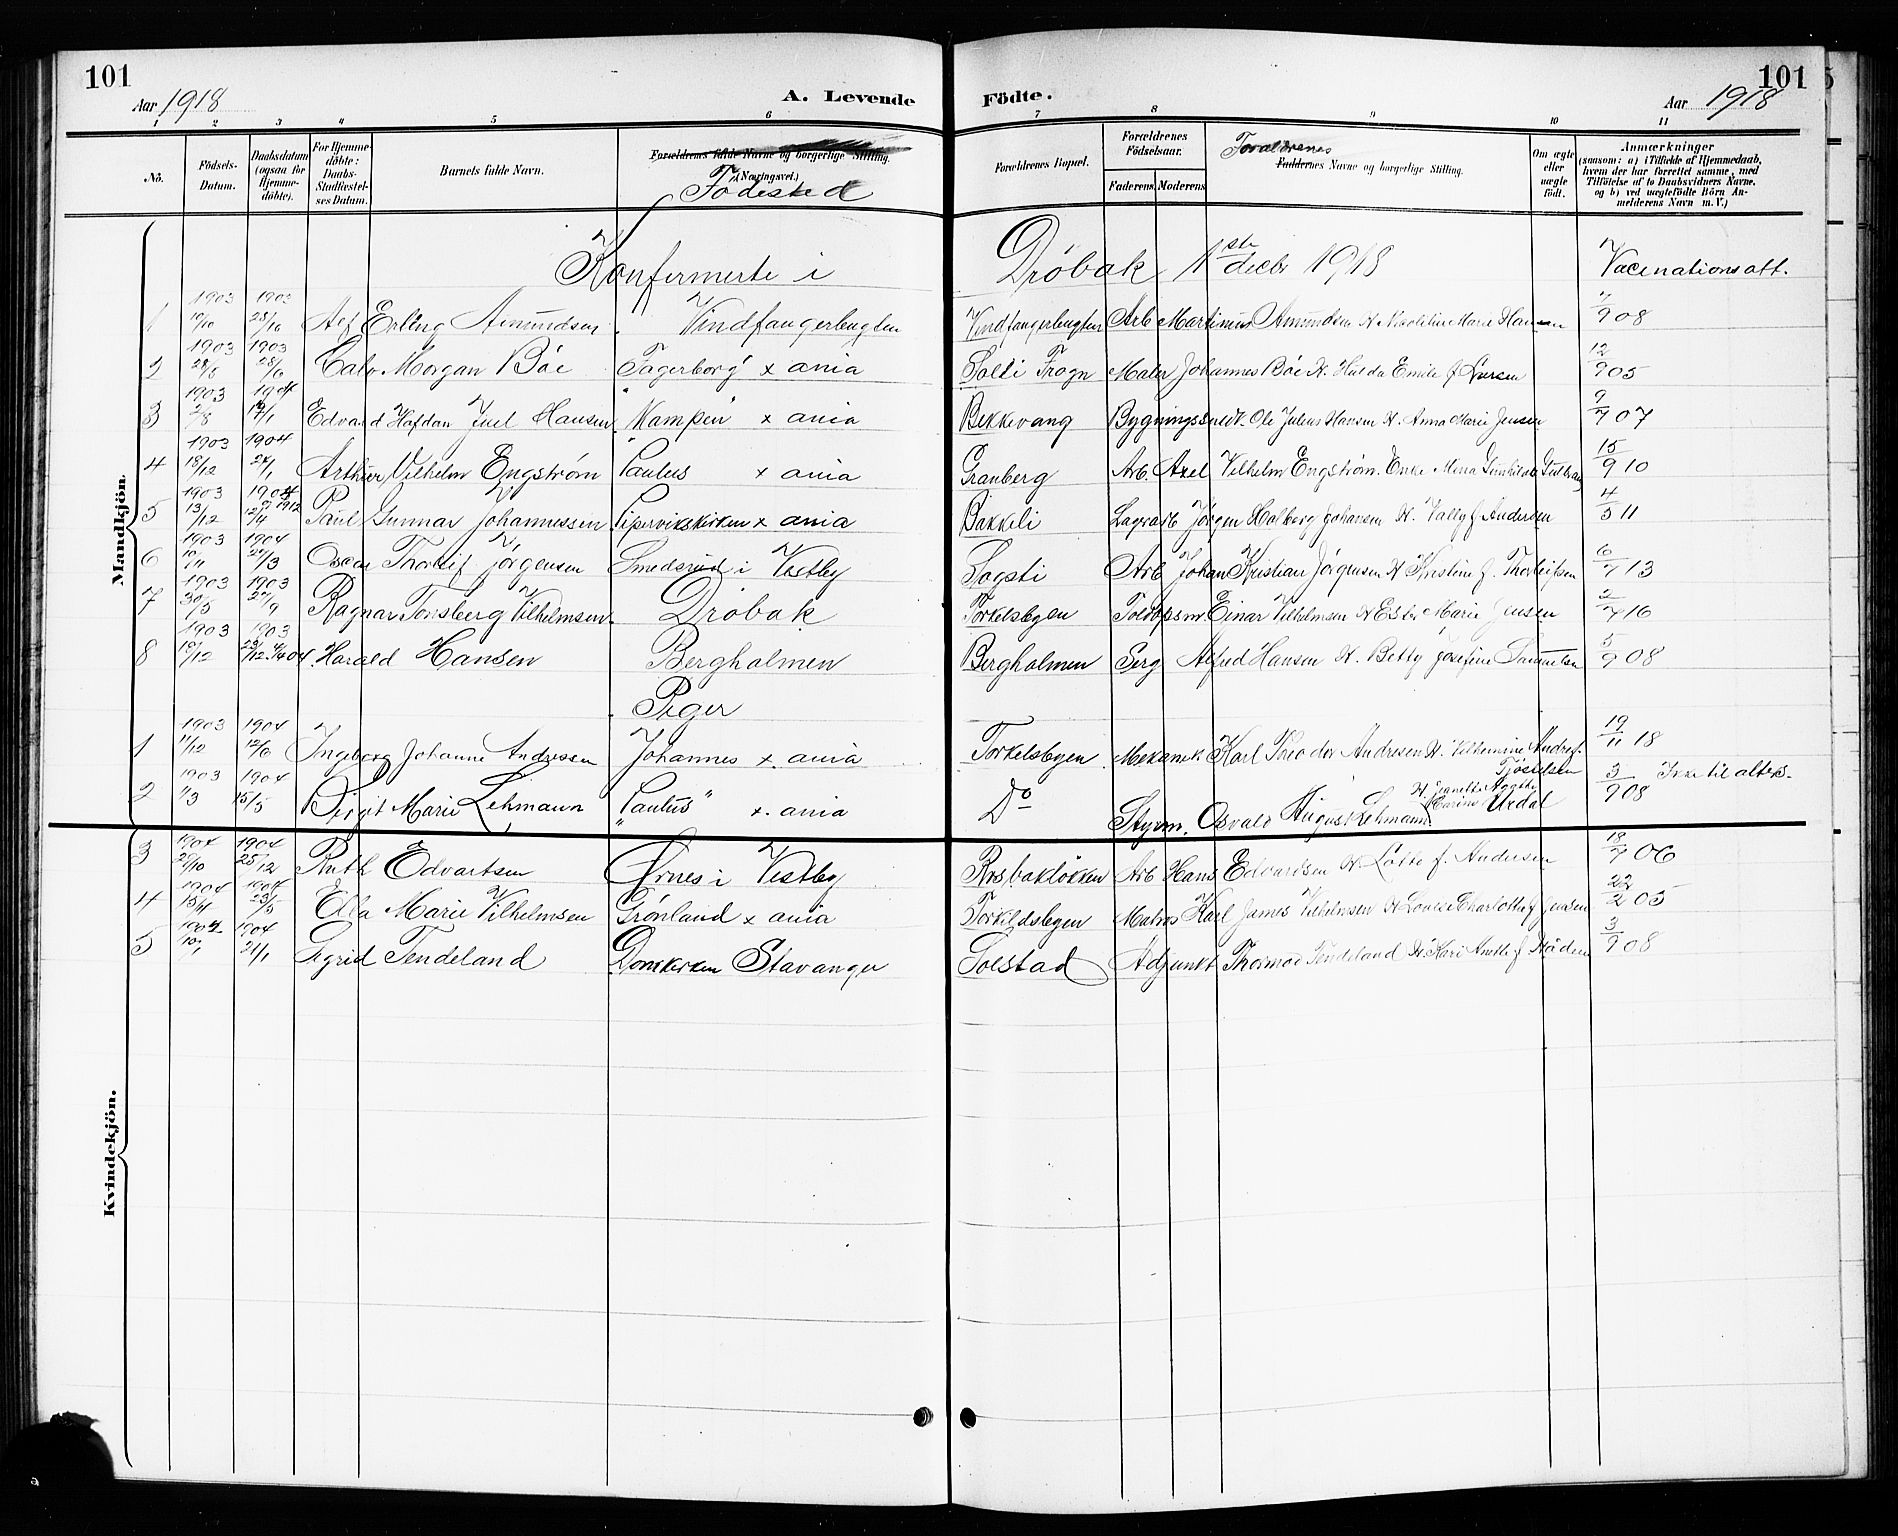 101
Aar 1918
A. Levende
Födte.
Aar 1918
101
1 2 3 4 5 6 7 8 9 10 11
No.
Födsels-Datum.
Daabsdatum (ogsaa for Hjemme-döbte).
For Hjemme-döbte: Daabs-Stadfæstel-ses Datum.
Barnets fulde Navn.
Forældrenes fulde Navne og borgerlige Stilling.
(Næringsvei.)
Födested
Forældrenes Bopæl.
Forældrenes Födselsaar.
Faderens.
Moderens.
Foraldrenes
Faddernes Navne og borgerlige Stilling.
Om ægte eller uægte födt.
Anmærkninger
(saasom: a) i Tilfælde af Hjemmedaab, hvem der har forrettet samme, med Tilföielse af to Daabsvidners Navne, og b) ved uægtefödte Börn An-melderens Navn m. V.)
Mandkjön.
Konfermerte i Dröbak 1ste decbr 1918 Vaccinationsatt.
1 1903 10/10 1903 28/10 Alf Erling Amundsen Vindfangerbugten Vindfangerbugten Arb Martinius Amundsen H Nicoline Marie Hansen 908
2 1903 28/5 1903 28/6 Morgan Böe Fagerborg x ania Solli Frogn Maler Johannes Böe H. Hulda Emilie f Iversen 12/905
3 1903 2/8 1904 Edvard Hafdan Juel Hansen Kampen x ania Bekkevang Bygningssnedk. Ole Julius Hansen H. Anna Marie Jensen 9/707
4 1903 18/12 1904 24/1 Arthur Vilhelm Engström Paulus x ania Granberg Arb. Axel Vilhelm Engström. Enke Mina Gunhilde 15/910
5 1903 13/12 1904 12/4 1912 Paul Gunnar Johannessen Pipervikskirken x ania Bakkeli Lagerarb Jörgen Holberg Johansen H. Vally f Andersen 4/511
6 1903 10/11 1904 20/3 Oscar Thorleif Jörgensen Smedsrud i Vestby Sogsti Arb Johan Kristian Jörgensen H Kristine f. Thorleifsen 6/713
7 1903 30/5 1903 27/9 Ragnar Tonsberg Vilhelmsen Dröbak Torkelsbyen Toldopsm Einar Vilhelmsen H Ester Marie Jensen 2/716
8 1903 10/12 1903 Harald Hansen Bergholmen Bergholmen Serg Alfred Hansen H. Betty Josefine 5/908
Piger
1 1903 11/12 1904 12/6 Ingeborg Johanne Andressen Johannes x ania Torkelsbyen Mekanik Karl Theodor Andresen H. Vilhelmine Andrea f. Tjöstelsen 19/1118
2 1903 1/3 1904 15/5 Birgit Marie Lehmann Paulus x ania Do Styrm. Osvald August Lehmann H. Jeanette Urdal 3/908 Ikke til alters.
Kvindekjön.
3 1904 29/10 1904 25/12 Ruth Edvartsen Örnes i Vestby Arb Hans Edvardsen H. Lotte f. Andersen 18/706
4 1904 15/4 1904 23/5 Ella Marie Vilhelmsen Grönland x ania Torkildsbyen Matros Karl James Vilhelmsen H Lovise Charlotte f Jensen 22/205
5 1904 10/1 1904 21/1 Sigrid Tendeland Domkirken Stavanger Solstad Adjunkt Thormod Tendeland H. Kari Anette f 3/908